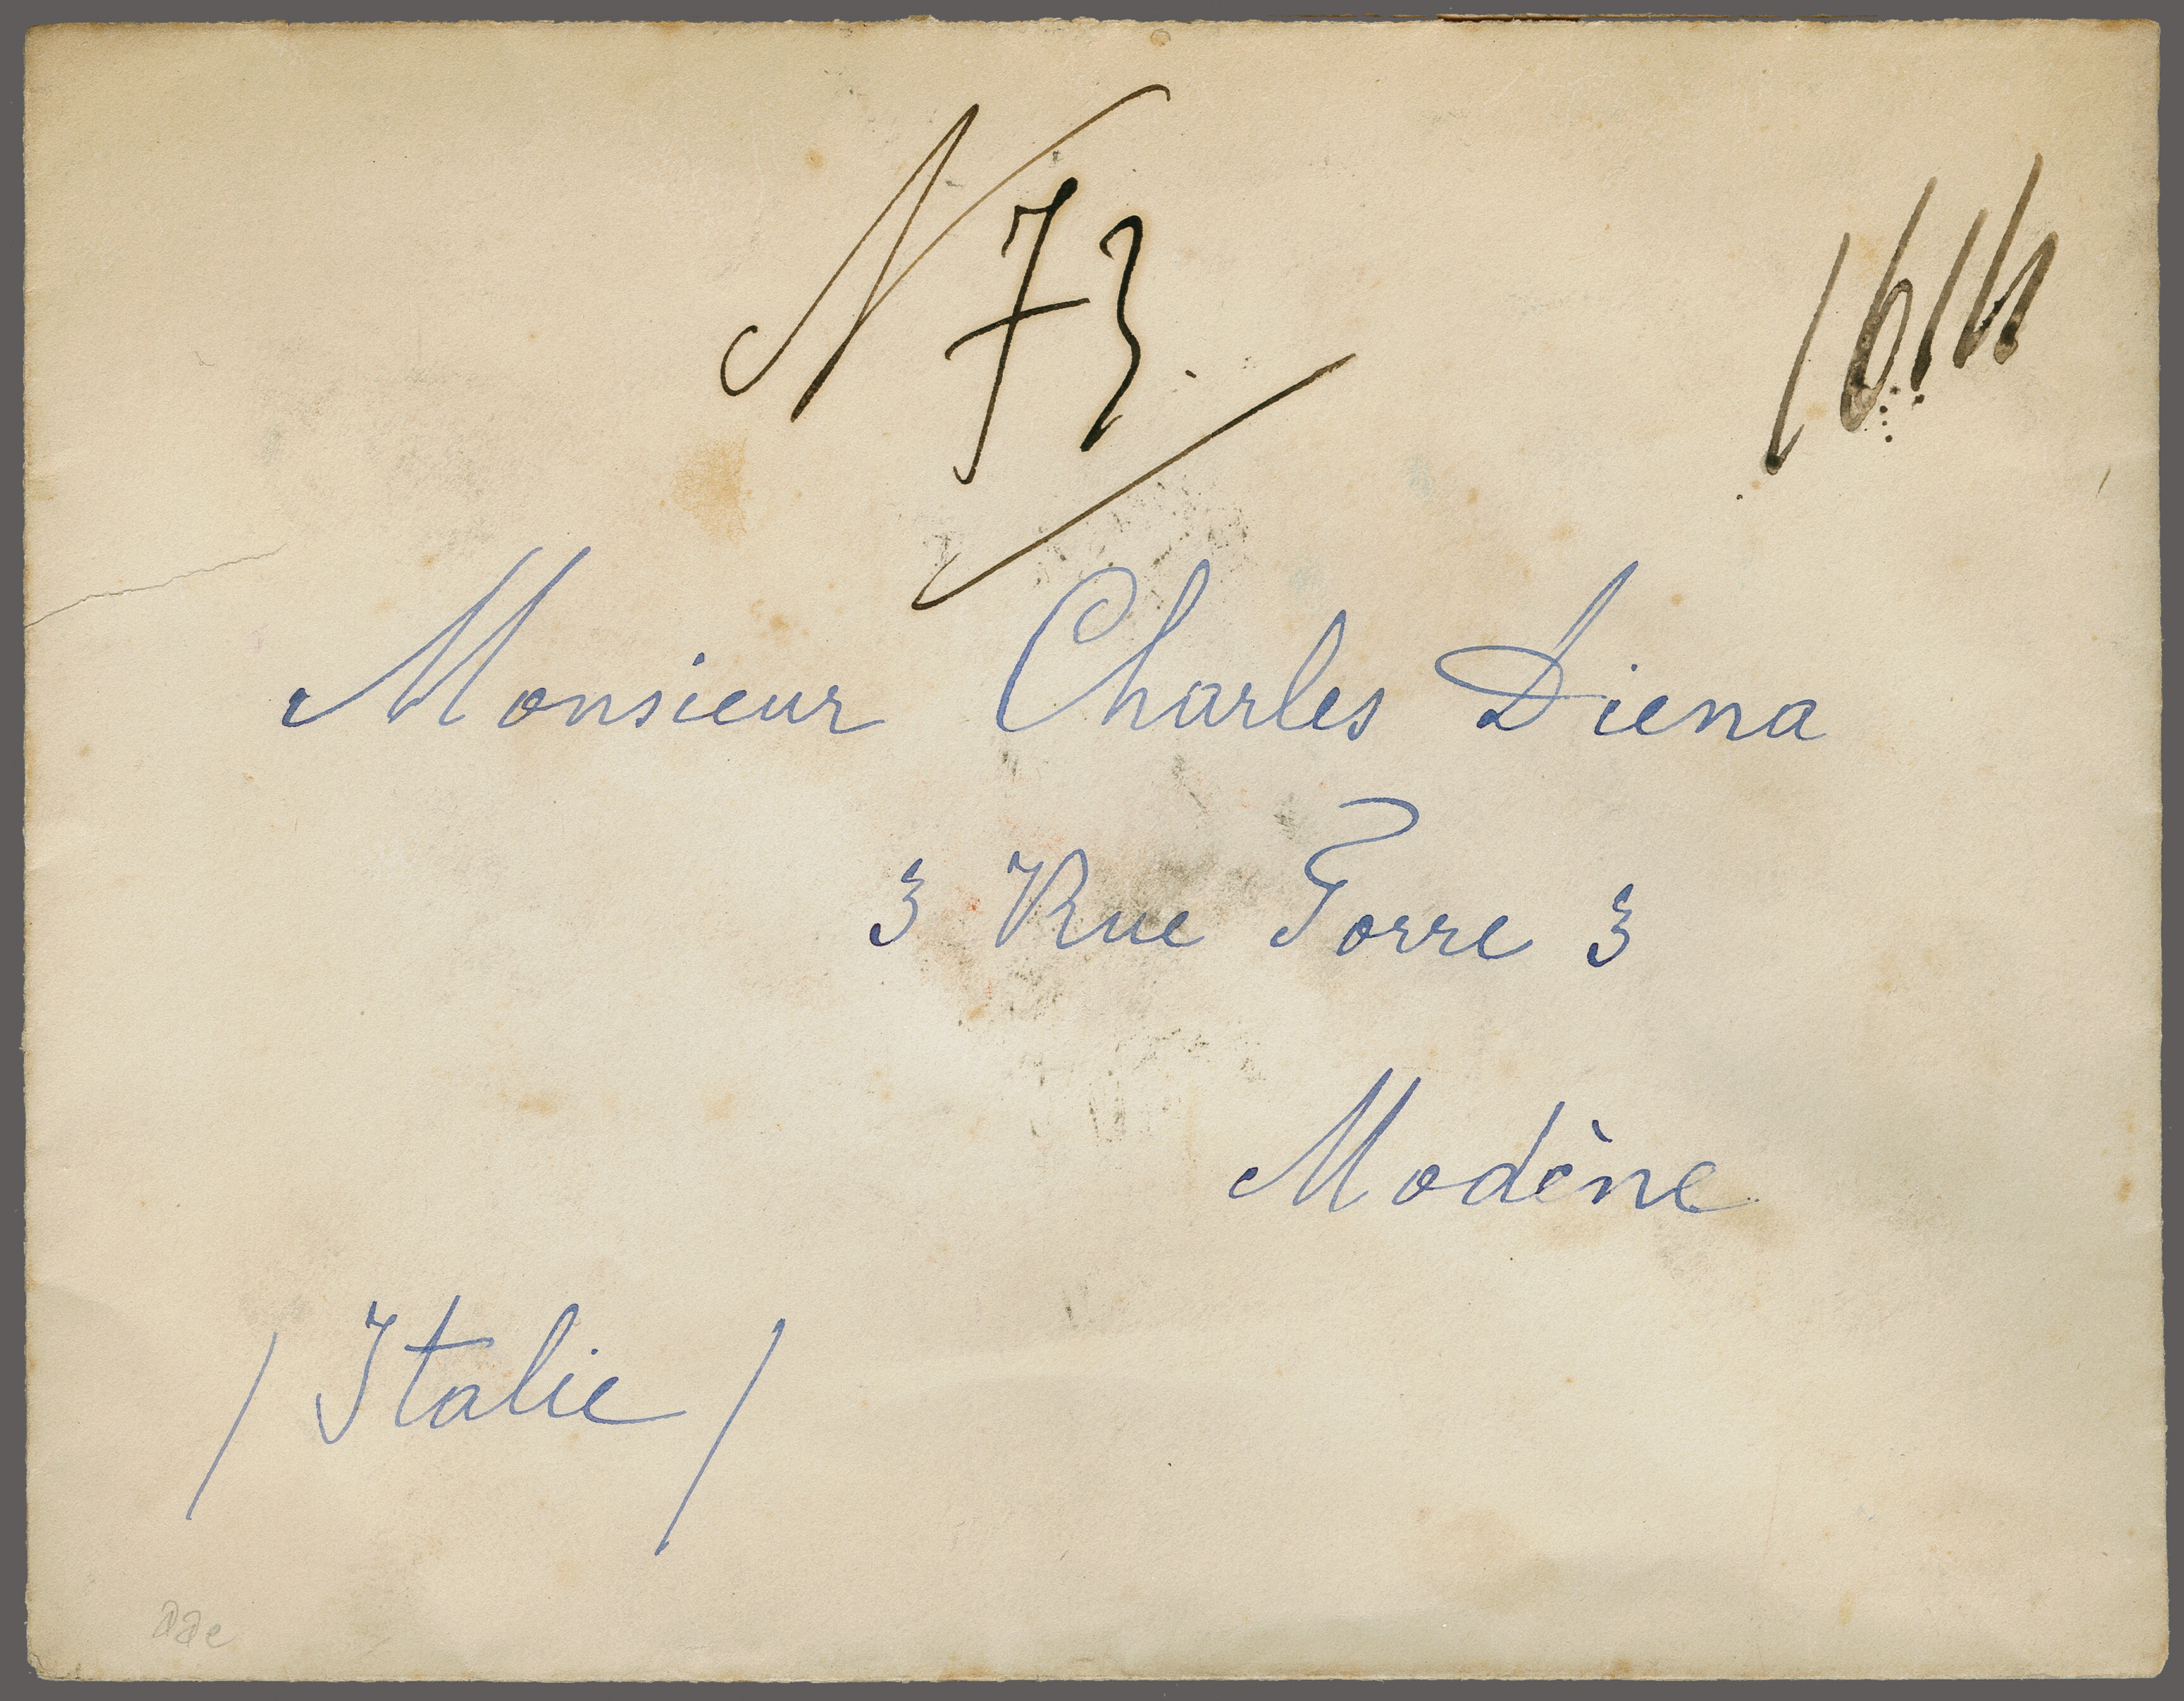 N 73.
Monsieur Charles Diena
3 Rue Torre 3
Modène
/ Italie /